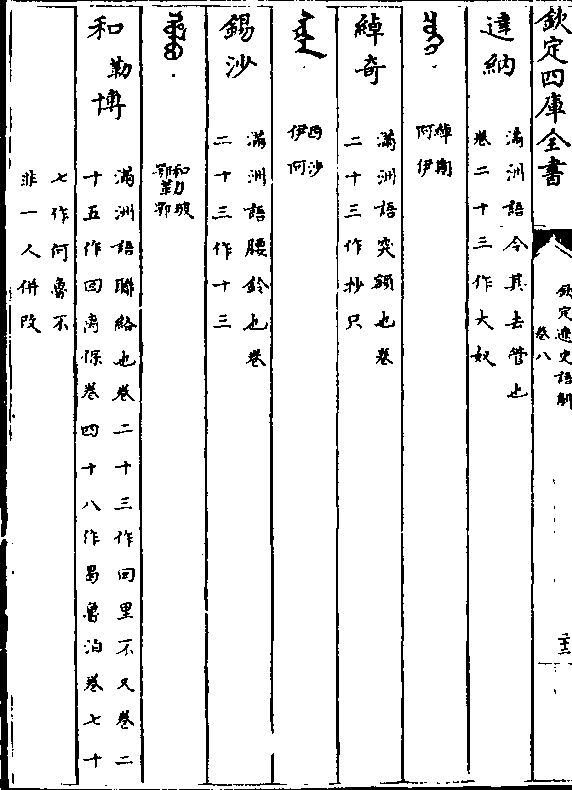 欽定四庫全書
欽定遼史語解
卷八
達納
滿洲語令其去管也
卷二十三作大奴
綽期
阿伊
綽奇
滿洲語突額也卷
二十三作抄只
西沙
伊阿
錫沙
滿洲語腰鈴也卷
二十三作十三
和勒玻
鄂業鄂
和勒博
滿洲語聯絡也卷二十三作回里不又卷二
十五作回离保卷四十八作曷魯泊卷七十
七作何魯不
非一人併改